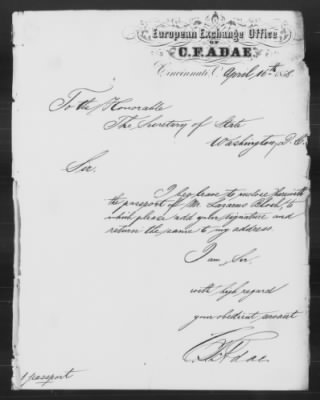 European Exchange Office
OF
C. F. ADAE.
Cincinnati, O. April 16th
To the Honorable
The Secretary of State
Washington, D. C.
Sir.
I beg leave to inclose herewith
the passport of Mr. Lazarus Bloch, to
which please add your signature and
return the same to my address.
I am, Sir,
with high regard
your obedient servant
C. F. Adae.
1 passport